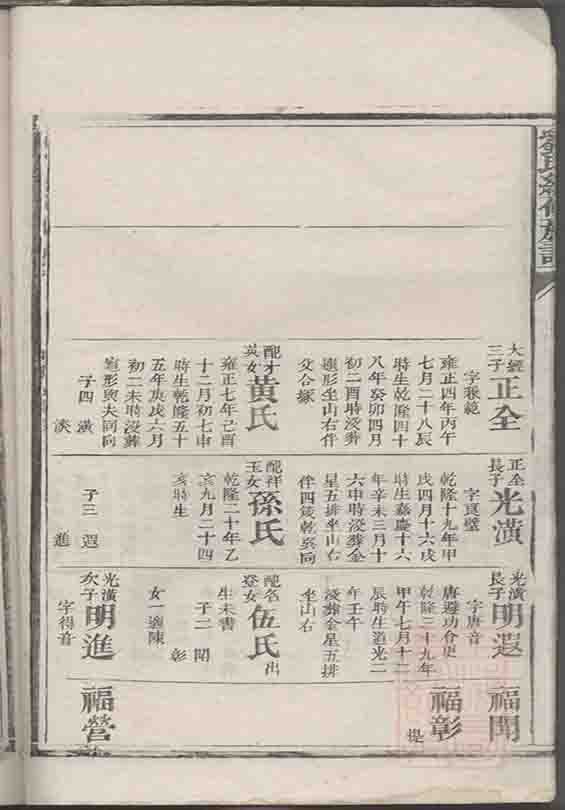 氏續修族譜
大經三子
正全
字裴範
雍正四年丙午
七月二十八辰
時生乾隆四十
八年癸卯四月
初二酉時歿葬
形坐山右伴
父合塚
配才英女
黃氏
雍正七年己酉
十二月初七申
時生乾隆五十
五年庚戌六月
初二未時歿葬
形與夫同向
子四
潢
淡
正全長子
光潢
字良璧
乾隆十九年甲
戌四月十六戌
時生嘉慶十六
年辛未三月十
六申時歿葬金
星五排坐山右
伴四筬乾巽向
配祥玉女
孫氏
乾隆二十年乙
亥九月二十四
亥時生
子三
遐
進
光潢長子
明遐
字唐音
唐遵功令更
乾隆三十九年
甲午七月十二
辰時生道光二
年壬午
歿葬金星五排
坐山右
配名登女
伍氏
出
生未書
子二
閗
彰
女一適陳
光潢次子
明進
字得音
福閗
福彰
提
福營